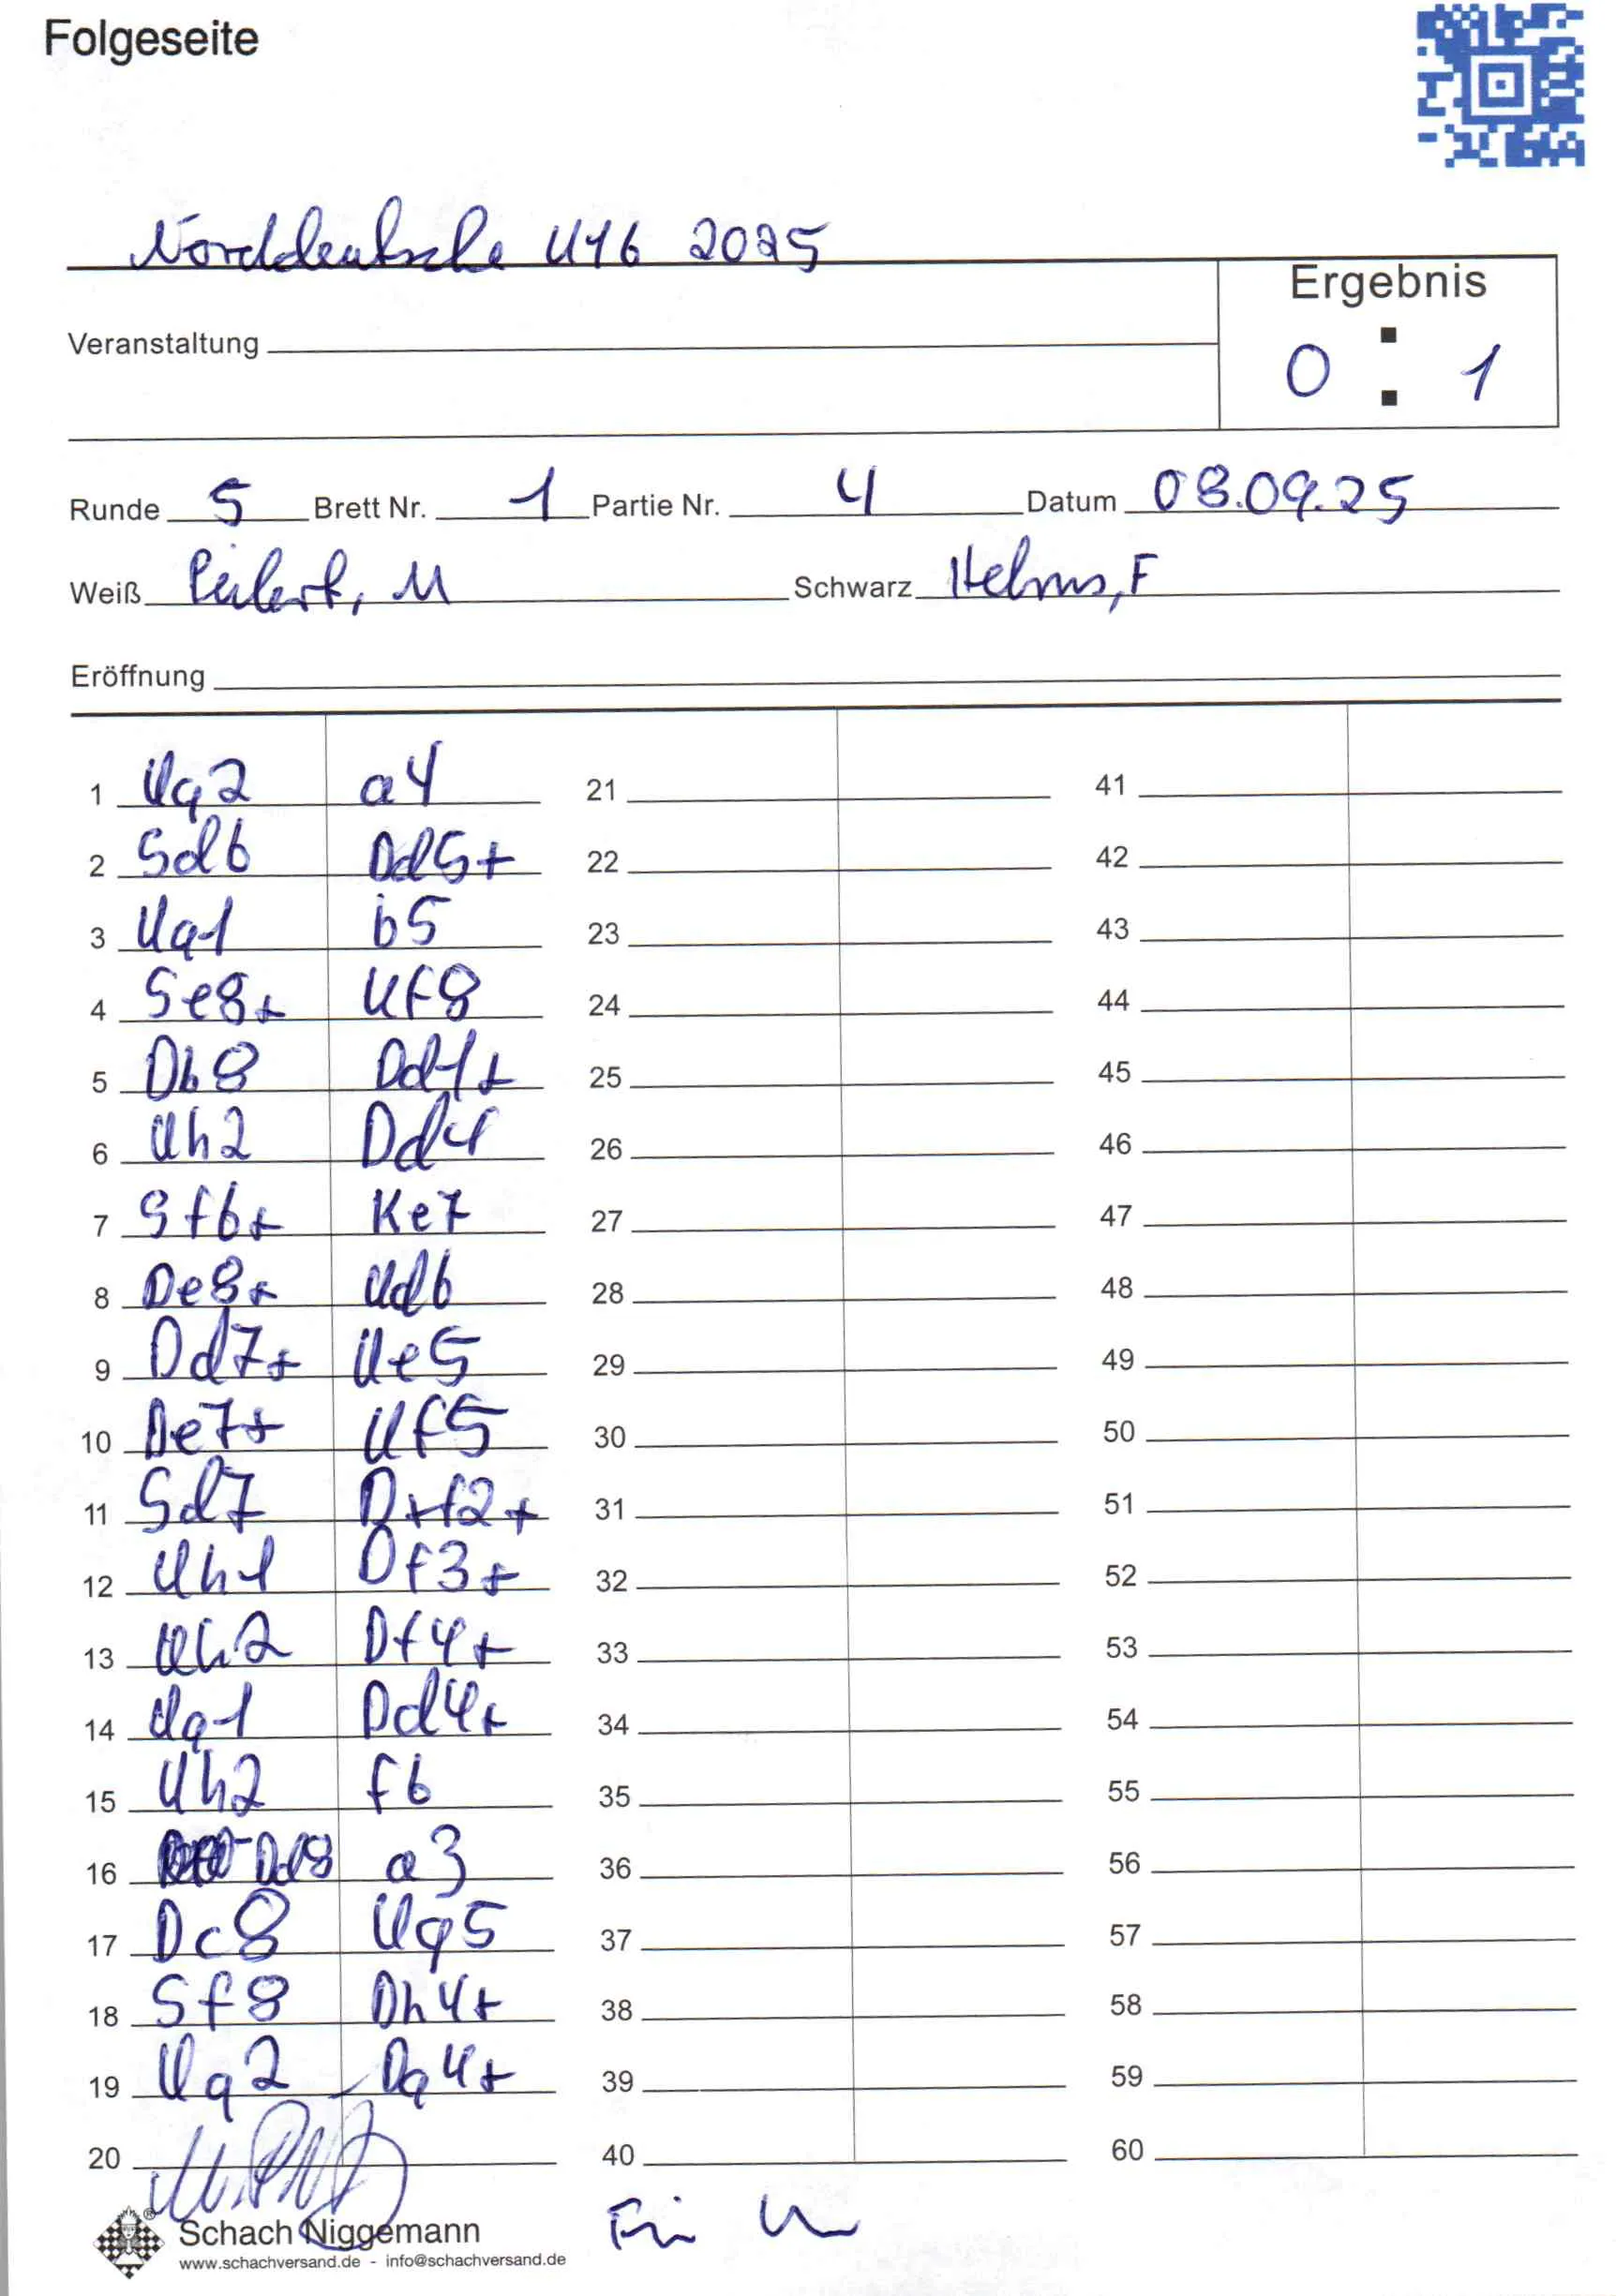 Folgeseite
Norddeutsche U16 2025
Ergebnis
Veranstaltung
0 : 1
Runde 5 Brett Nr. 1 Partie Nr. 4 Datum 08.09.25
Weiß M Schwarz Helms, F
Eröffnung
1 Kg2 a4 21 41
2 Sd6 Dd5+ 22 42
3 Kg1 b5 23 43
4 Se8+ Kf8 24 44
5 Db8 Dd1+ 25 45
6 Kh2 Dd4 26 46
7 Sf6+ Ke7 27 47
8 De8+ Kd6 28 48
9 Dd7+ Ke5 29 49
10 De7+ Kf5 30 50
11 Sd7 Dxf2+ 31 51
12 Kh1 Df3+ 32 52
13 Kh2 Df4+ 33 53
14 Kg1 Dd4+ 34 54
15 Kh2 f6 35 55
16 Dd8 a3 36 56
17 Dc8 Kg5 37 57
18 Sf8 Dh4+ 38 58
19 Kg2 Dg4+ 39 59
20 40 60
Schach Niggemann
www.schachversand.de - info@schachversand.de